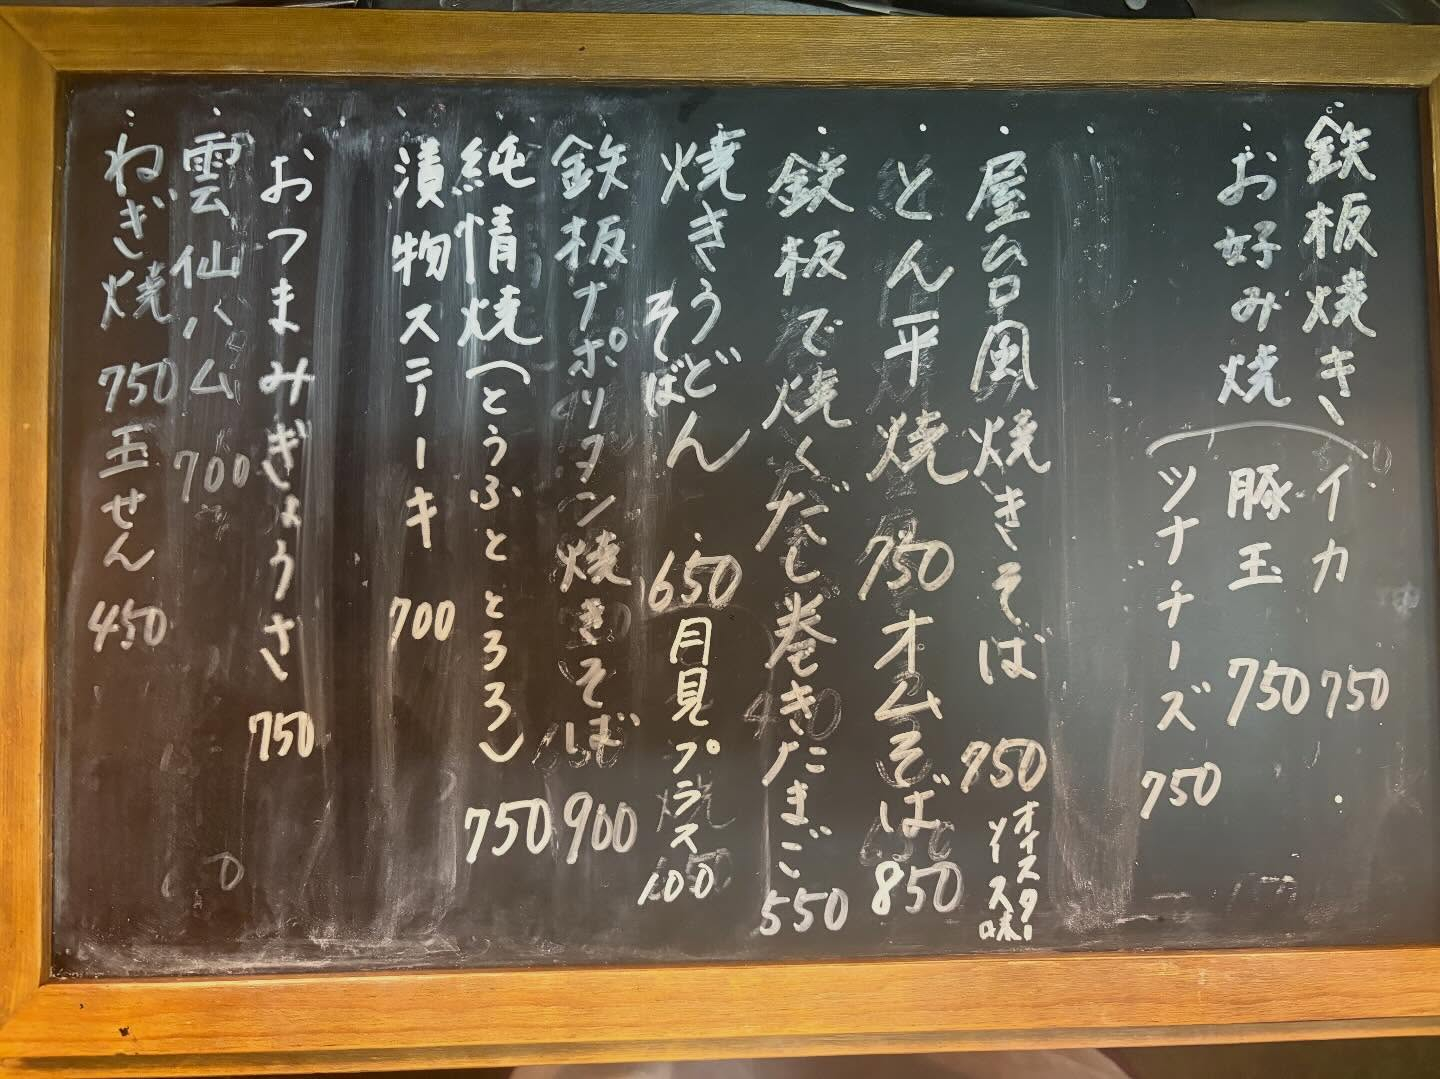 鉄板焼き
お好み焼
イカ 750
豚玉 750
ツナチーズ 750
屋台風焼きそば 750 オイスターソース味
とん平焼 750 オムそば 850
鉄板で焼くだし巻きたまご 550
焼きうどん
そば
650 月見プラス 100
鉄板ナポリタン焼きそば 900
純情焼(とうふととろろ) 750
漬物ステーキ 700
おつまみぎょうさ 750
雲仙ハム 700
ねぎ焼 750 玉せん 450